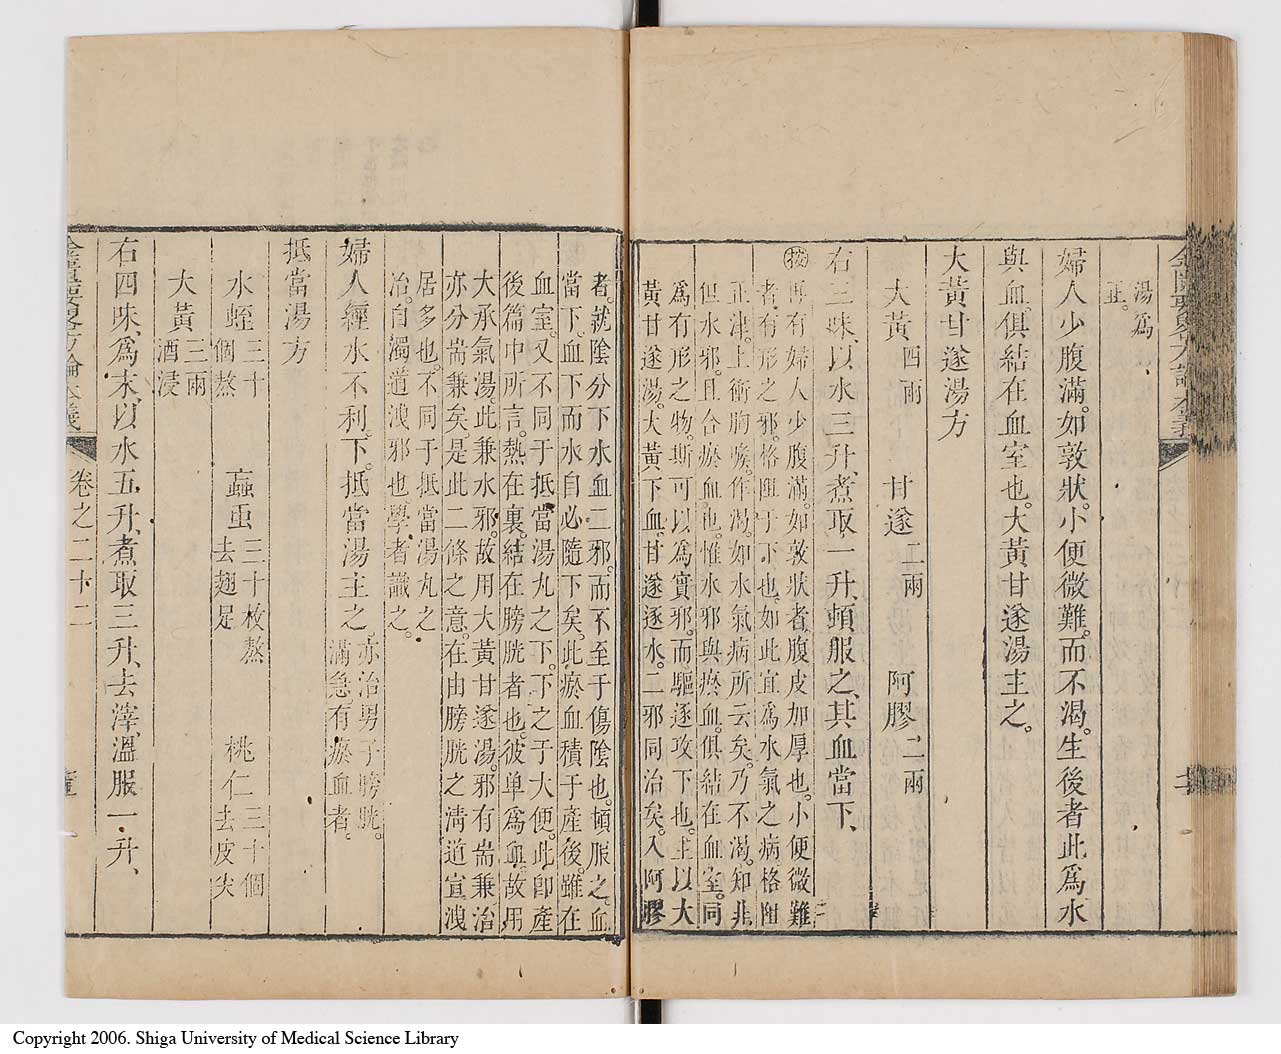 湯爲
正。
婦人少腹滿。如敦狀。小便微難。而不渴。生後者。此爲水
與血。俱結在血室也。大黃甘遂湯主之。
大黃甘遂湯方
大黃四兩 甘遂二兩 阿膠二兩
右三味、以水三升、煮取一升、頓服之、其血當下、
按再有婦人少腹滿。如敦狀者。腹皮加厚也。小便微難
者。有形之邪。格阻于下也。如此宜爲水氣之病。格阻
正津。上衝胸喉。作渴。如水氣病所云矣。乃不渴。知非
但水邪。且合瘀血也。惟水邪與瘀血。俱結在血室。同
爲有形之物。斯可以爲實邪。而驅逐攻下也。主以大
黃甘遂湯。大黃下血。甘遂逐水。二邪同治矣。入阿膠
者。就陰分下水血二邪。而不至于傷陰也。頓服之。血
當下。血下而水自必隨下矣。此瘀血積于產後。雖在
血室。又不同于抵當湯丸之下。下之于大便。此卽產
後篇中所言。熱在裏。結在膀胱者也。彼单爲血。故用
大承氣湯。此兼水邪。故用大黃甘遂湯。邪有耑兼。治
亦分耑兼矣。是此二條之意。在由膀胱之淸道宣洩
居多也。不同于抵當湯丸之
治。自濁道洩邪也。學者識之。
婦人經水不利。下。抵當湯主之。亦治男子膀胱。
滿急。有瘀血者。
抵當湯方
水蛭三十個熬 蝱虫三十枚熬去翅足 桃仁三十個去皮尖
大黃三兩酒浸
右四味、爲末、以水五升、煮取三升、去滓、溫服一升、
金匱要畧方論本義 卷之二十二
Copyright 2006. Shiga University of Medical Science Library